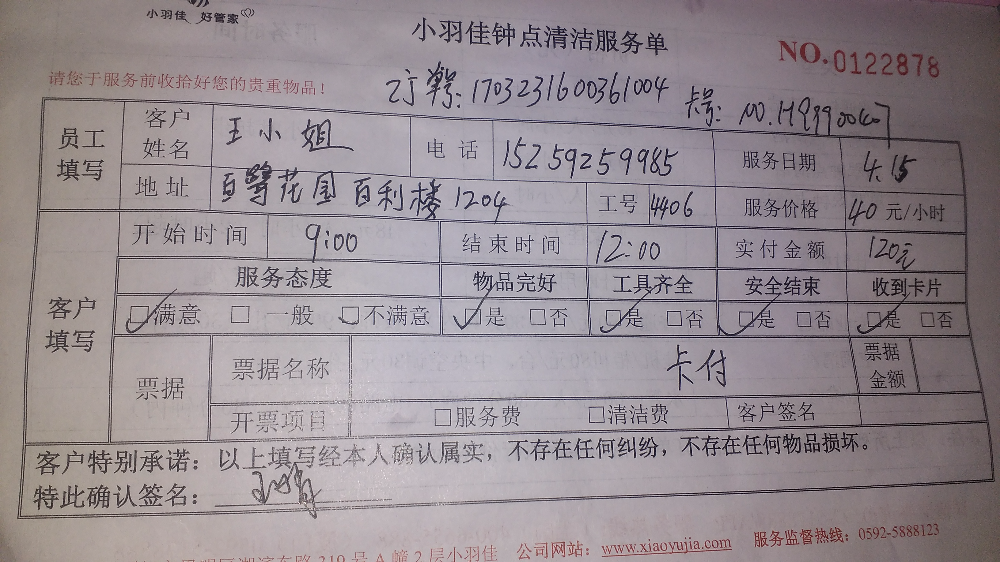 小羽佳 好管家
小羽佳钟点清洁服务单
NO.0122878
请您于服务前收拾好您的贵重物品！
订单号: 1703231600361004
卡号:
员工填写 客户姓名 王小姐 电话 15259259985 服务日期 4.15
地址 百花园百利楼1204 工号 4406 服务价格 40元/小时
客户填写 开始时间 9:00 结束时间 12:00 实付金额 120元
服务态度 物品完好 工具齐全 安全结束 收到卡片
□满意 □一般 □不满意 □是 □否 □是 □否 □是 □否 □是 □否
票据 票据名称 卡付 票据金额
开票项目 □服务费 □清洁费 客户签名
客户特别承诺：以上填写经本人确认属实，不存在任何纠纷，不存在任何物品损坏。
特此确认签名：
310号A幢2层小羽佳 公司网站：www.xiaoyujia.com 服务监督热线：0592-5888123